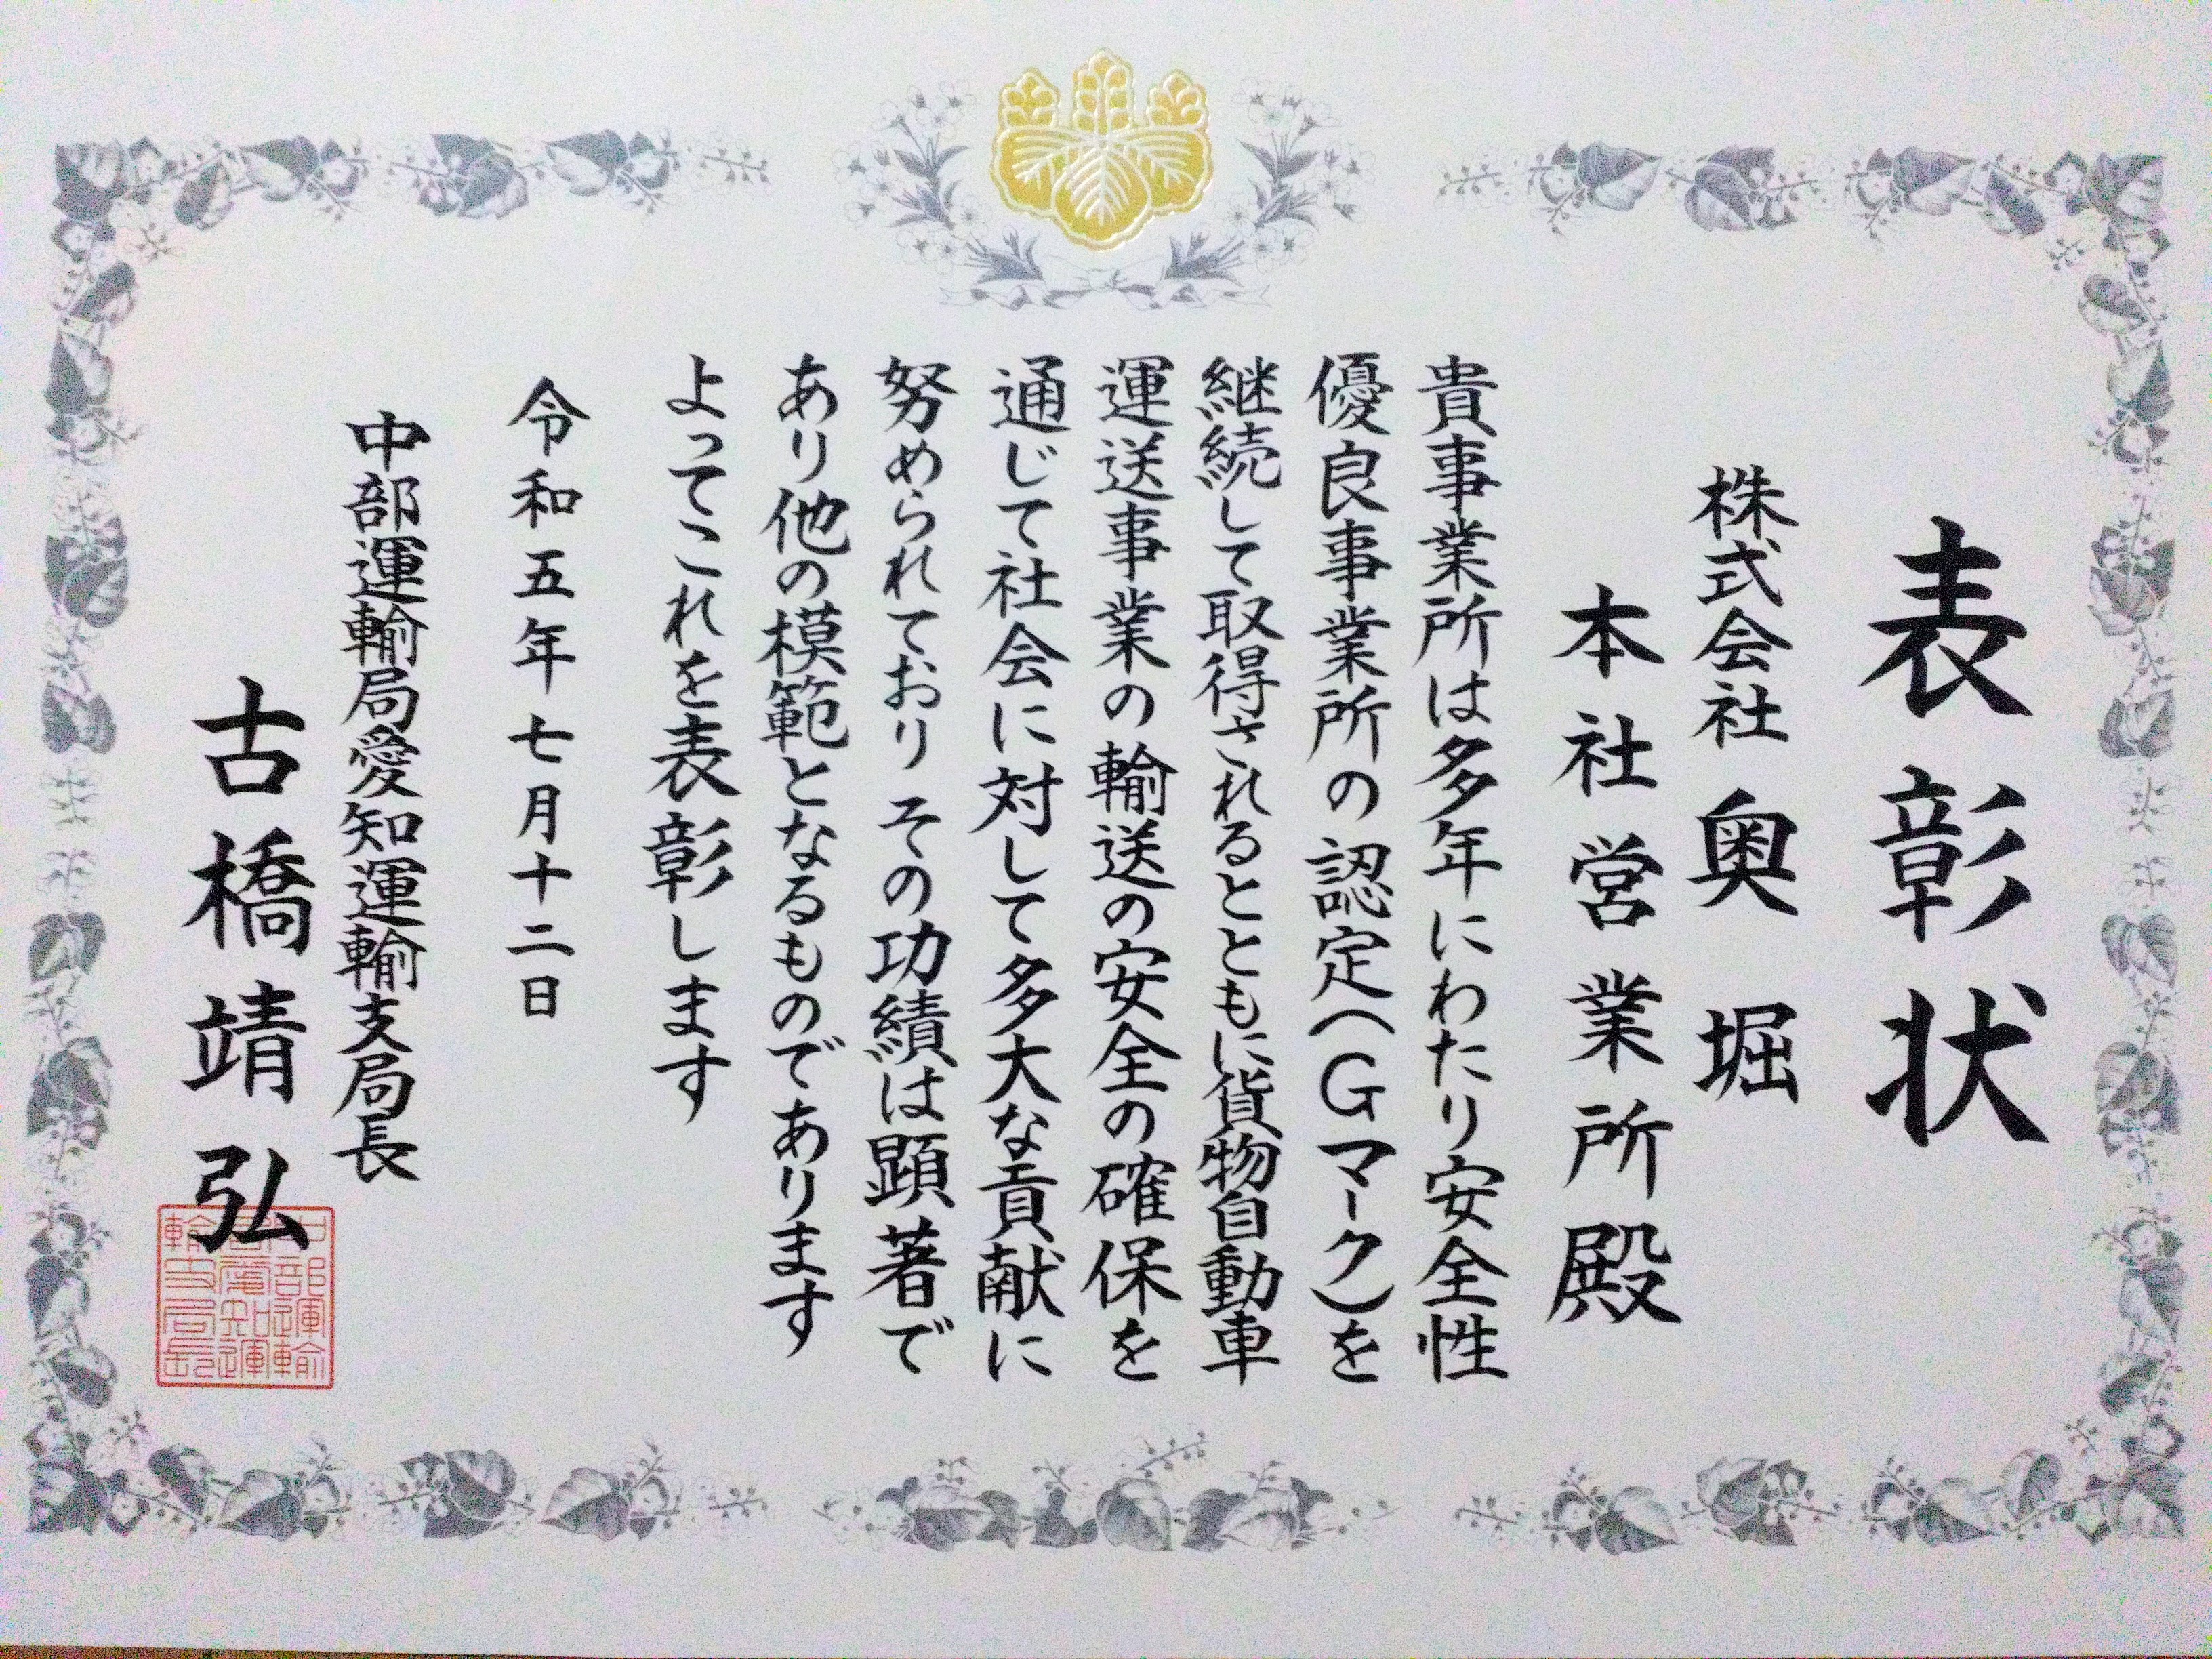 表彰状
株式会社奥堀
本社営業所殿
貴事業所は多年にわたり安全性
優良事業所の認定(Gマーク)を
継続して取得されるとともに貨物自動車
運送事業の輸送の安全の確保を
通じて社会に対して多大な貢献に
努められておりその功績は顕著で
あり他の模範となるものであります
よってこれを表彰します
令和五年七月十二日
中部運輸局愛知運輸支局長
古橋靖弘
中部運輸
局愛知運
輸支局長